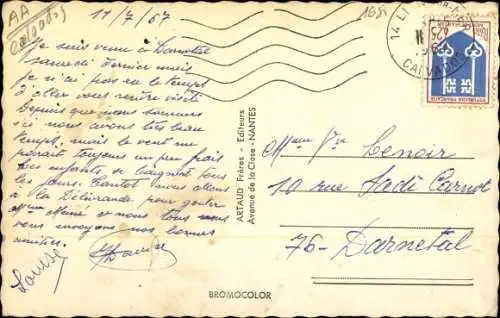 AA
11/7/67
Je suis venue à Darnétal
samedi dernier mais
je n'ai pas eu le temps
d'aller vous rendre visite
Depuis que nous sommes
ici nous avons très beau
temps, mais le vent me
paraît toujours un peu frais
Les enfants se baignent tous
les jours. Tantôt nous allons
à la Délivrande pour goûter
et nous tous
vous envoyons nos bonnes
amitiés.
Louise
ARTAUD Frères - Editeurs
Avenue de la Close - NANTES
BROMOCOLOR
14
CALVADOS
REPUBLIQUE FRANÇAISE
0,25
Lenoir
10 rue Sadi Carnot
76- Darnetal